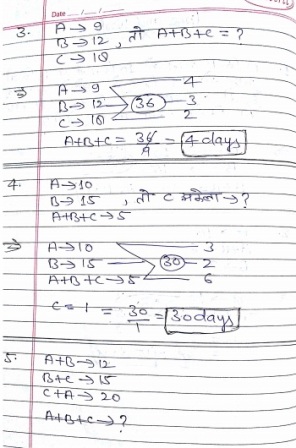 Date ....../....../......
3. A→9
B→12 , तो A+B+C = ?
C→18
⇒ A→9 4
B→12 36 3
C→18 2
A+B+C = 36/9 = 4 days
4. A→10
B→15 , तो C अकेला→?
A+B+C→5
⇒ A→10 3
B→15 30 2
A+B+C→5 6
C = 1 = 30/1 = 30 days
5. A+B→12
B+C→15
C+A→20
A+B+C→?